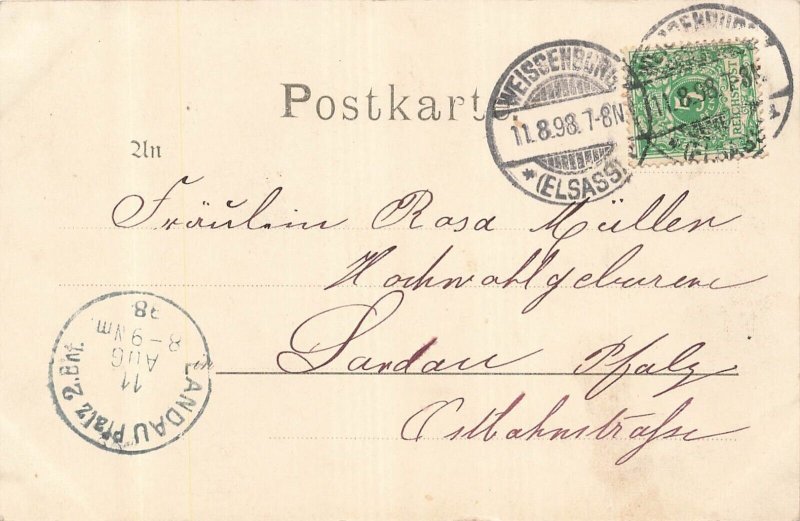 Postkarte
WEISSENBURG
11.8.98.7-8N.
*(ELSASS)
11.8.98.7-8N.
*(ELSASS)
5
REICHSPOST
An
Fräulein Rosa Müller
Hochwohlgeboren
Landau Pfalz
Ostbahnstraße
LANDAU Pfalz 2.Bhf.
11
AUG
8-9 Nm.
98